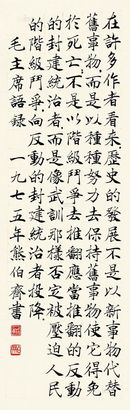 在許多作者看來,歷史的發展不是以新事物代替
舊事物,而是以種種努力去保持舊事物使它得免
於死亡;不是以階級鬥爭去推翻應當推翻的反動
的封建統治者,而是像武訓那樣否定被壓迫人民
的階級鬥爭向反動的封建統治者投降。
毛主席語錄 一九七五年熊伯齊書